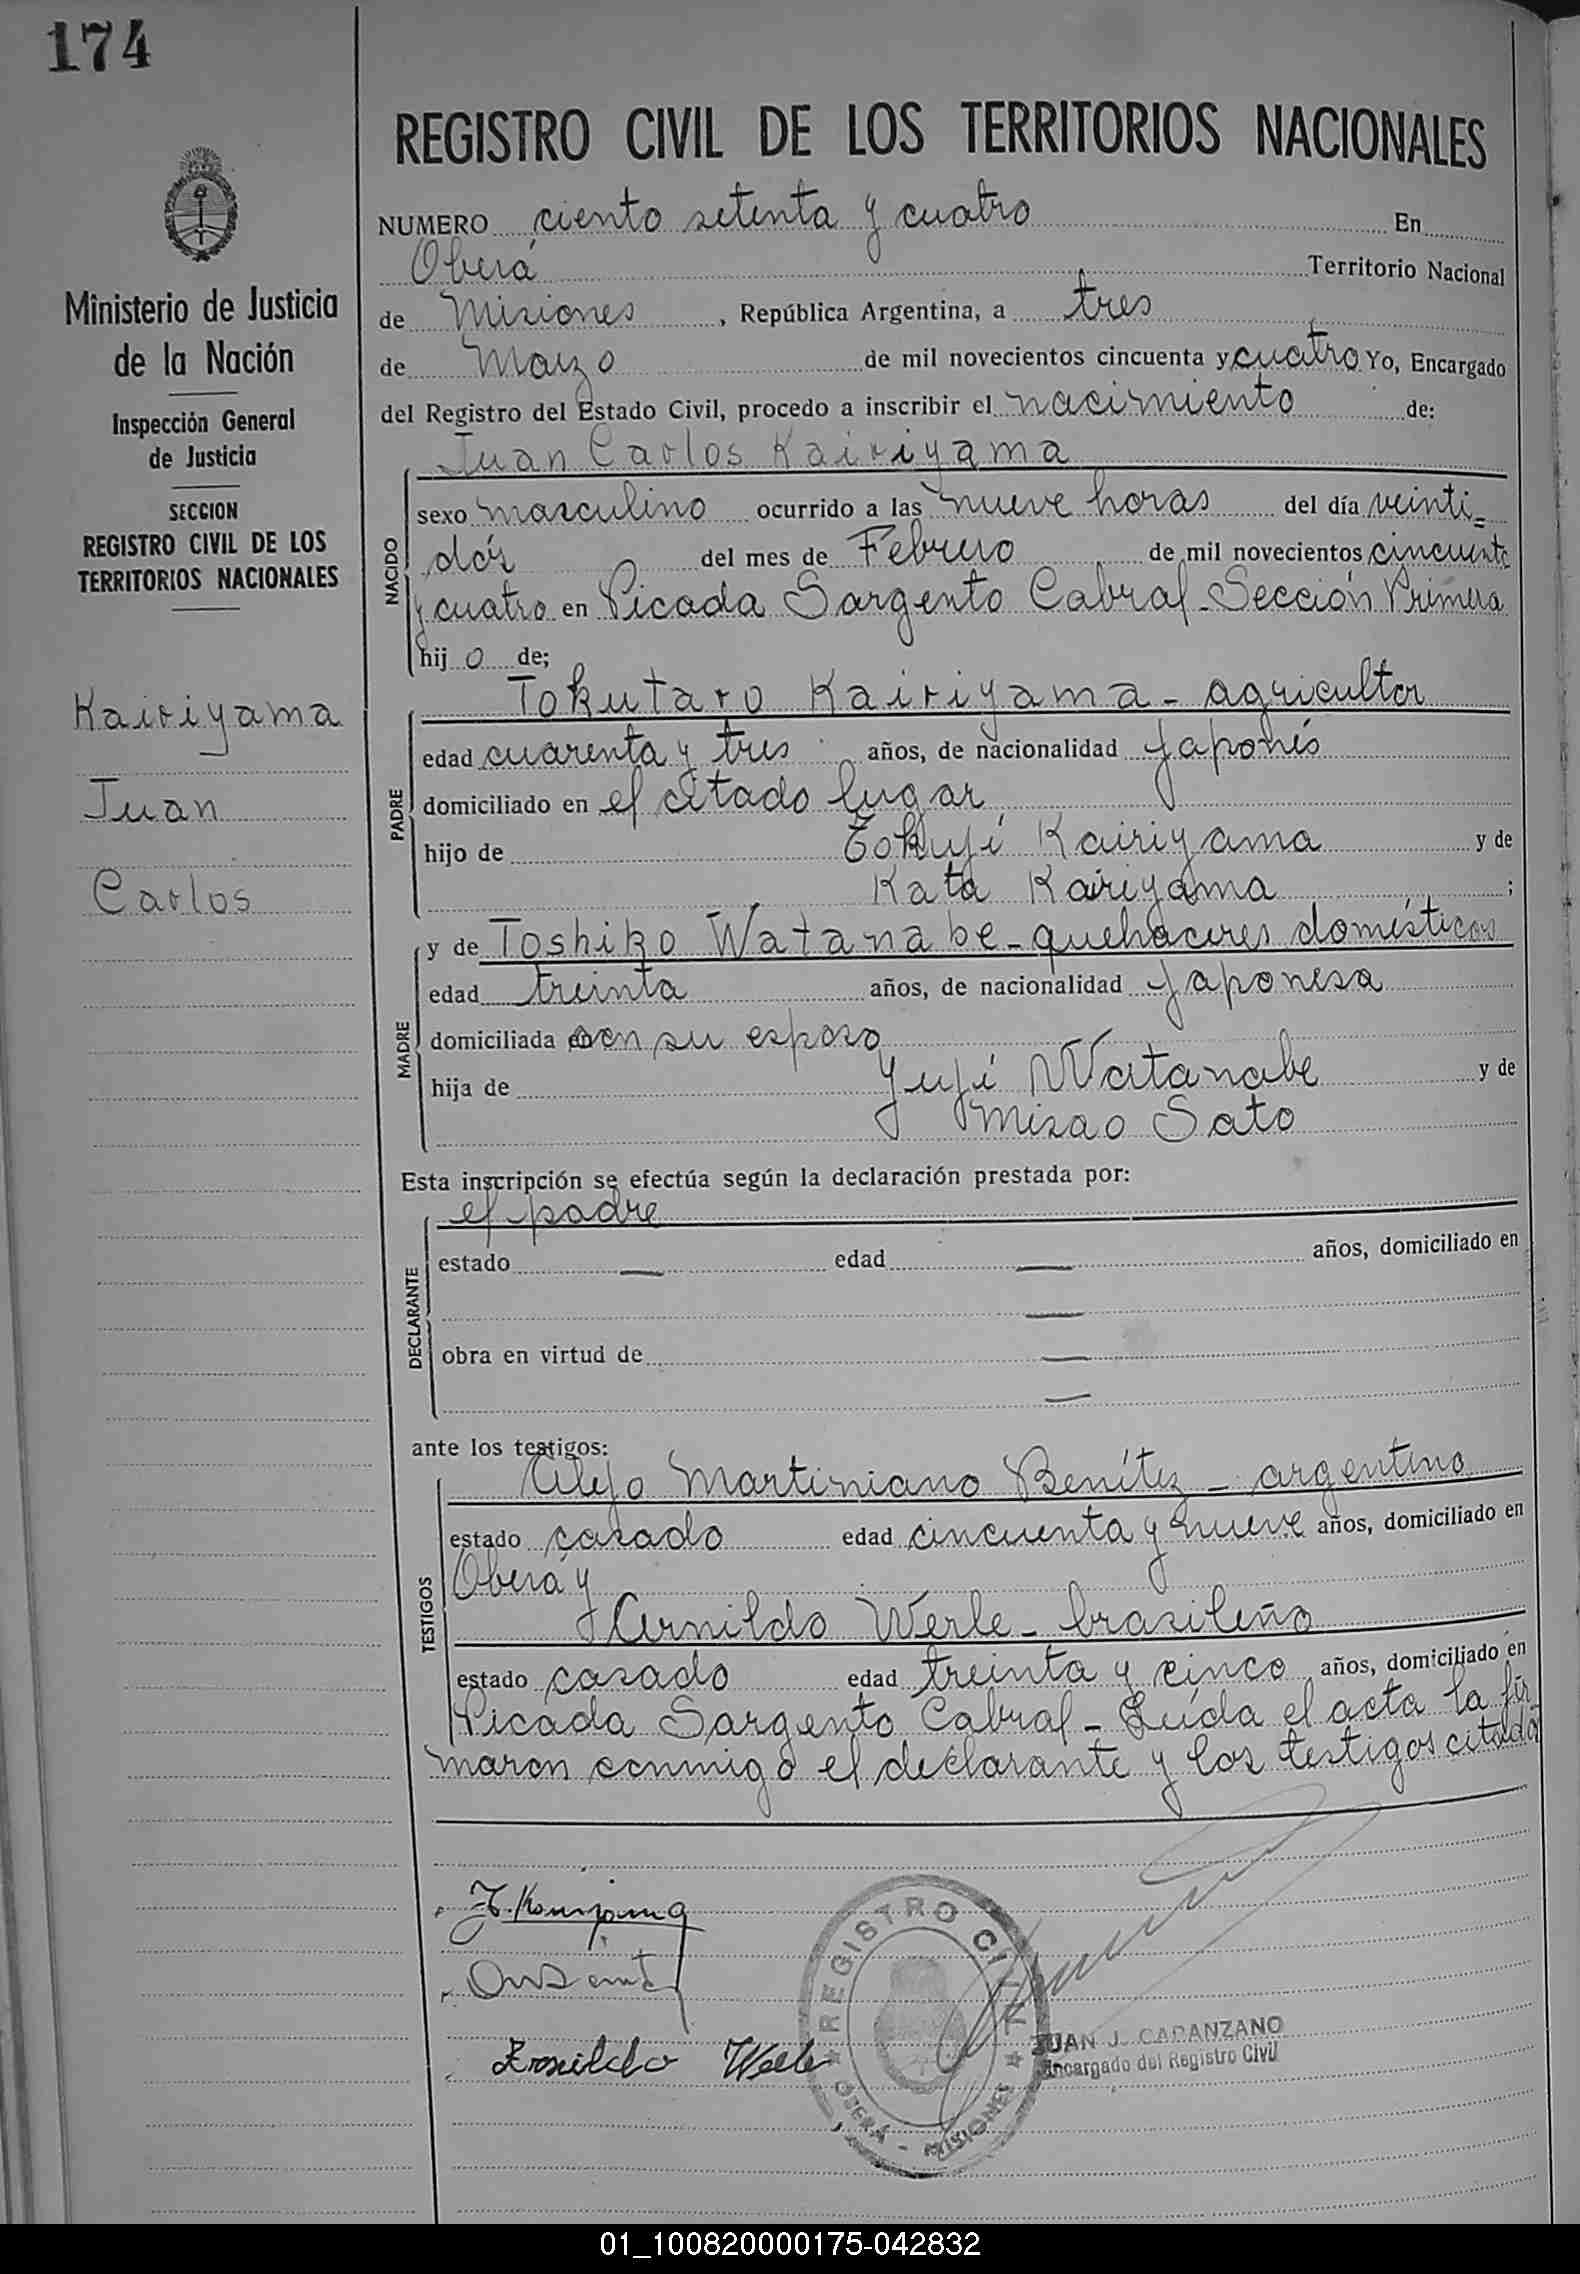 174
REGISTRO CIVIL DE LOS TERRITORIOS NACIONALES
Ministerio de Justicia
de la Nación
Inspección General
de Justicia
SECCION
REGISTRO CIVIL DE LOS
TERRITORIOS NACIONALES
Kairiyama
Juan
Carlos
NUMERO ciento setenta y cuatro En
Oberá Territorio Nacional
de Misiones, República Argentina, a tres
de Marzo de mil novecientos cincuenta y cuatro Yo, Encargado
del Registro del Estado Civil, procedo a inscribir el nacimiento de:
Juan Carlos Kairiyama
NACIDO
sexo masculino ocurrido a las nueve horas del día veinti=
dós del mes de Febrero de mil novecientos cincuenta
y cuatro en Picada Sargento Cabral-Sección Primera
hijo de;
Tokutaro Kairiyama - agricultor
PADRE
edad cuarenta y tres años, de nacionalidad japonés
domiciliado en el citado lugar
hijo de Tokuji Kairiyama y de
Kata Kairiyama ;
MADRE
y de Toshiko Watanabe - quehaceres domésticos
edad treinta años, de nacionalidad japonesa
domiciliada con su esposo
hija de Yuji Watanabe y de
Misao Sato
Esta inscripción se efectúa según la declaración prestada por:
el padre
DECLARANTE
estado — edad — años, domiciliado en
—
obra en virtud de —
—
ante los testigos:
Alejo Martiniano Benítez - argentino
TESTIGOS
estado casado edad cincuenta y nueve años, domiciliado en
Oberá y
Arnildo Werle - brasileño
estado casado edad treinta y cinco años, domiciliado en
Picada Sargento Cabral - Leída el acta la fir
maron conmigo el declarante y los testigos citados
REGISTRO CIVIL
OBERÁ - MISIONES
JUAN J. CAPANZANO
Encargado del Registro Civil
Werle
01_100820000175-042832